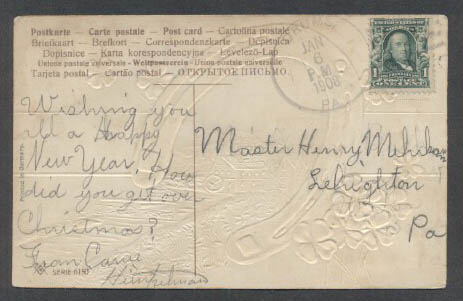 Postkarte — Carte postale — Post card — Cartolina postale
Briefkaart — Brefkort — Correspondenzkarte — Dopisnica
Dopisnice — Karta korespondencyjna — Levelező-Lap
Unione postale universale — Weltpostverein — Union postale universelle
Tarjeta postal — Cartão postal — ОТКРЫТОЕ ПИСЬМО
JAN
6
P.M.
1908
PA
1
Wishing you
all a Happy
New Year. How
did you get over
Christmas?
From Carrie
Master Henry
Lehighton
Pa
Printed in Germany
SERIE 6150